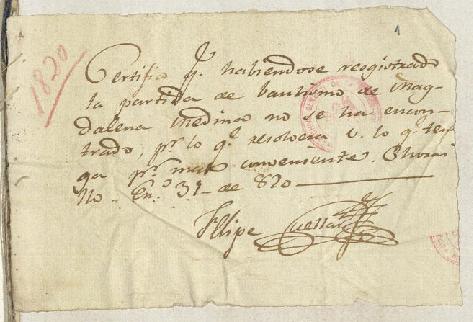 1
1820
Certifico q.e habiendose resgistrado
la partida de bautismo de Mag-
dalena Medina no se ha encon-
trado, p.r lo q.e resolvera V. lo q.e ten-
ga p.r mas conveniente.
No. En.o 31 de 820
Felipe Cuellar